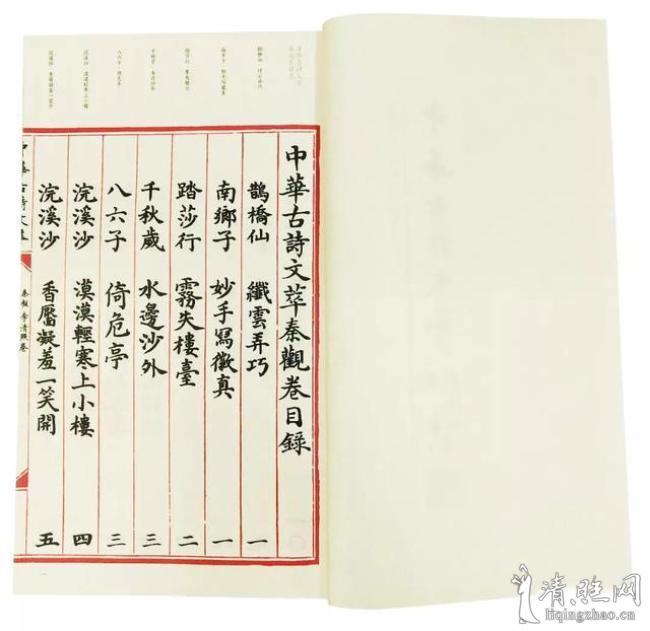 中華古詩文萃秦觀卷目錄
鵲橋仙 纖雲弄巧 一
南鄉子 妙手寫徽真 一
踏莎行 霧失樓臺 二
千秋歲 水邊沙外 三
八六子 倚危亭 三
浣溪沙 漠漠輕寒上小樓 四
浣溪沙 香靨凝羞一笑開 五
中華古詩文萃
秦觀李清照卷
清照网
liqingzhao.cn